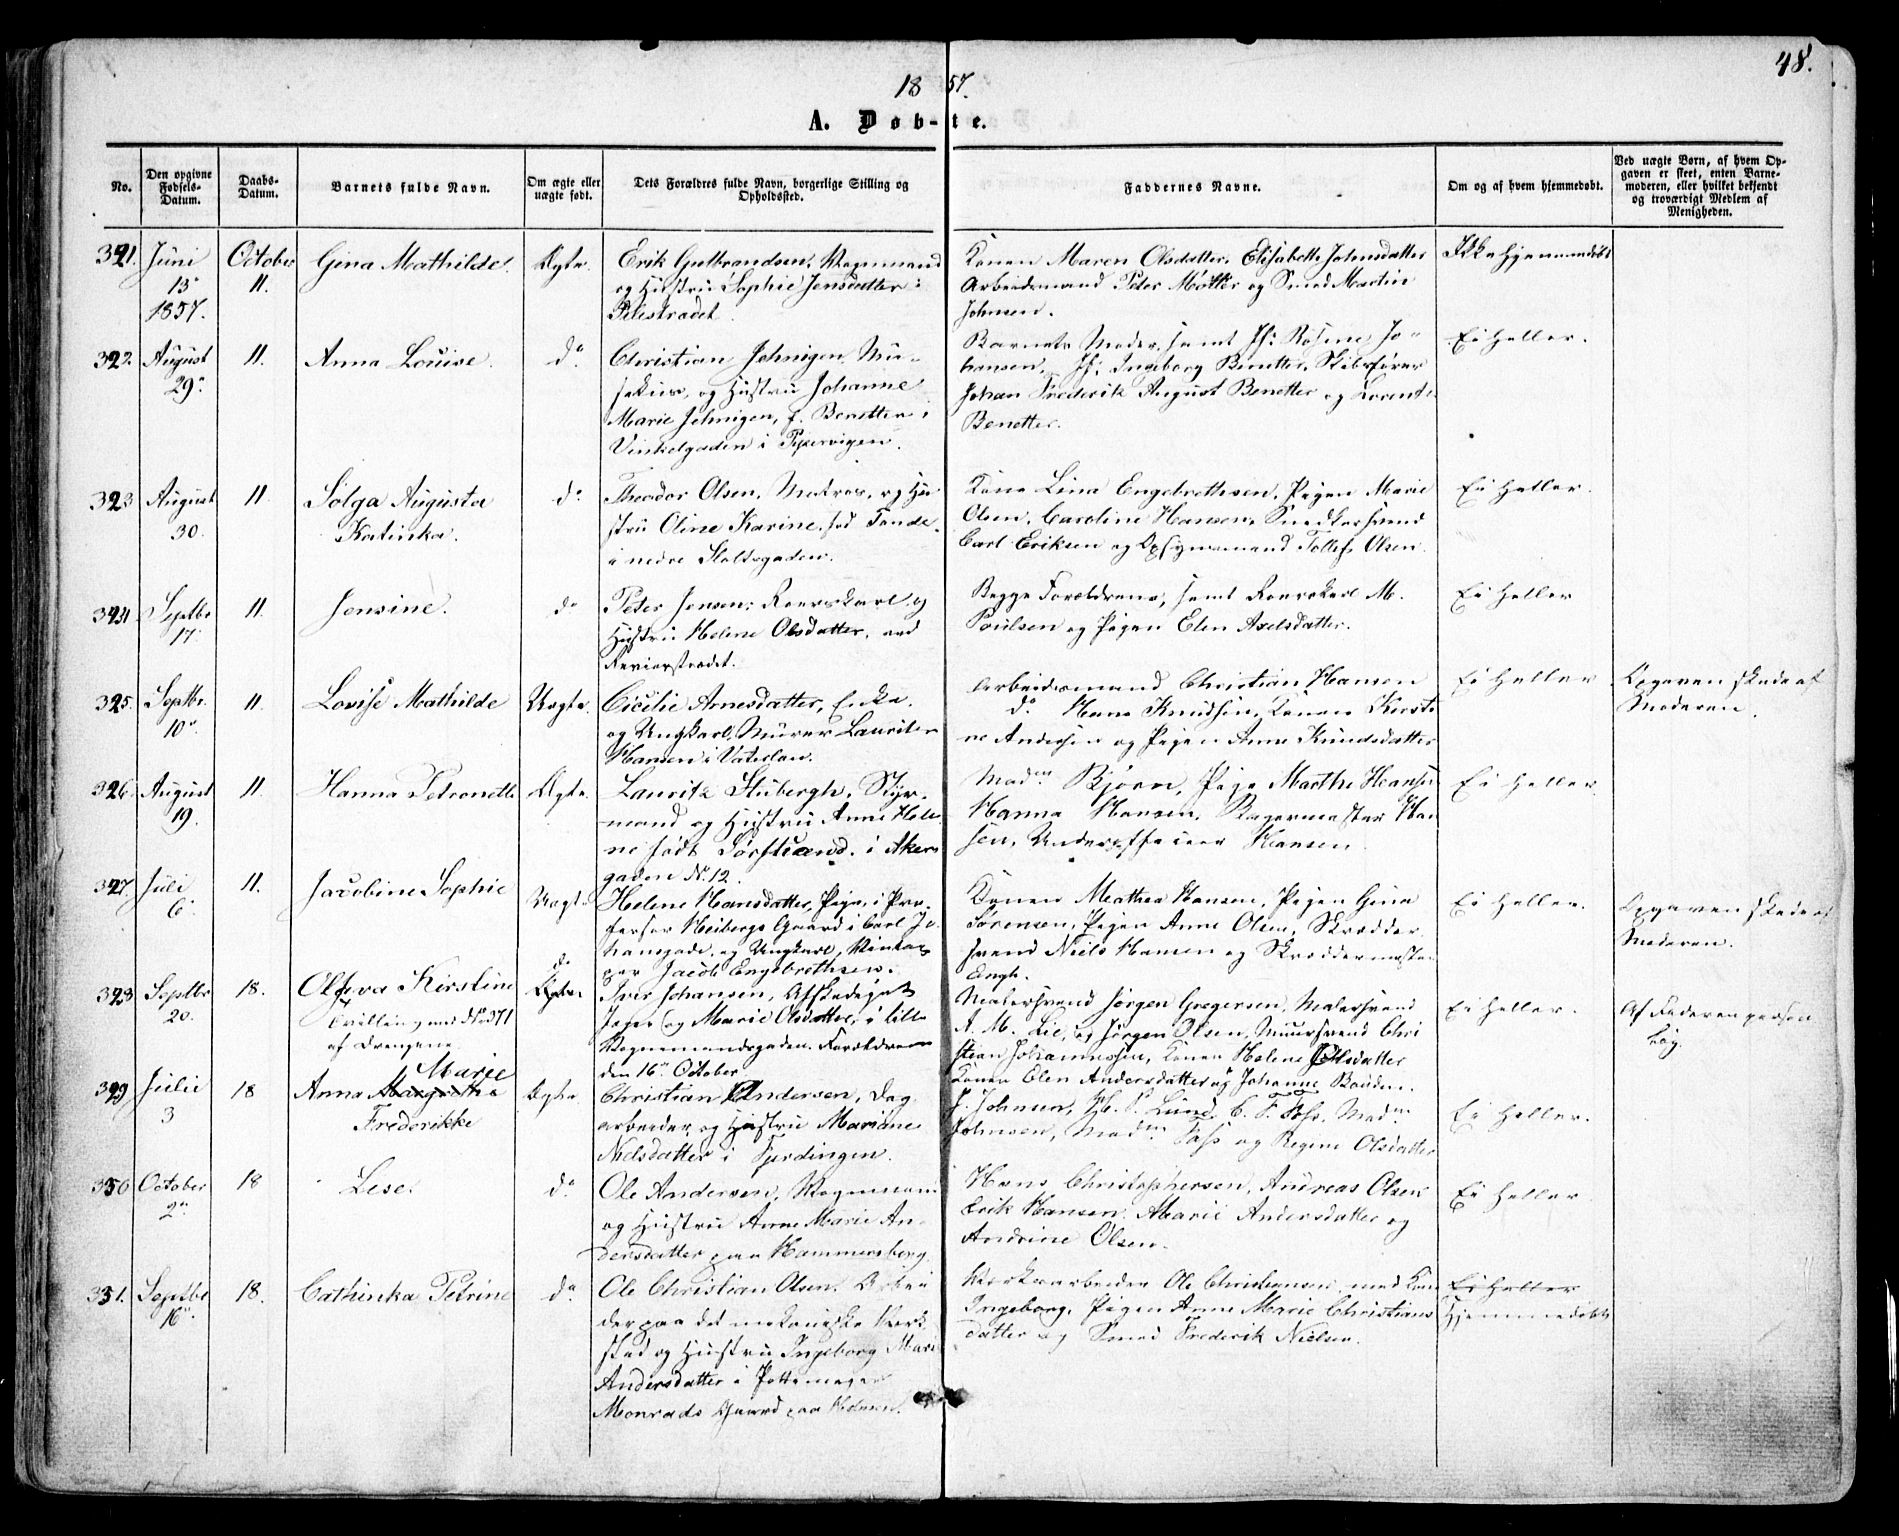 48.
1857.
A. Døb-te.
No.
Den opgivne Fødsels-Datum.
Daabs-Datum.
Barnets fulde Navn.
Om ægte eller uægte født.
Dets Forældres fulde Navn, borgerlige Stilling og Opholdssted.
Faddernes Navne.
Om og af hvem hjemmedøbt.
Ved uægte Børn, af hvem Opgaven er skeet, enten Barnemoderen, eller hvilket bekjendt og troværdigt Medlem af Menigheden.
321. Juni 13 1857. October 11. Gina Mathilde. Ægte.
Erik Gulbrandsen, Vognmand
og Hustru Sophie Jensdatter i
Pilestrædet.
Konen Maren Olsdatter, Elisabeth Johnsdatter
Arbeidsmand Peter Møller og Smed Martin
Johnsen.
Ikke hjemmedøbt
322. August 29. 11. Anna Louise. do
Christian Jehnigen, Mu-
sikus, og Hustru Johanne
Marie Jehnigen, f. Benetter i
Vinkelgaden i Pipervigen.
Barnets Moder, samt Jf: Rosine Jo-
hansen, Jf: Ingeborg Benetter, Skibsfører
Johan Frederik August Benetter og
Benetter.
Ei heller.
323 August 30. 11. Solga Augusta
Katinka.
do
Theodor Olsen, Matros, og Hu
stru Oline Karine, fød
i nedre Slotsgaden.
Kone Lina Engebrethsen, Pigen Marie
Olsen, Caroline Hansen, Snedkersvend
Carl Eriksen og Opsynsmand Tollef Olsen.
Ei heller.
324 Septbr 17. 11. Jensine. do
Peter Jensen, Roerskarl og
Hustru Helene Olsdatter, ved
Revierstrædet.
Begge Forældrene, samt Roerskarl M.
Poulsen og Pigen Elen Axelsdatter.
Ei heller
325. Septbr. 10. 11. Lovise Mathilde Uægte.
Cicilie Arnesdatter, Enke,
og Ungkarl, Murer Lauritz
Hansen i Vaterlan.
Arbeidsmand Christian Hansen
do Hans Knudsen, Konen Kirsti
ne Andersen og Pigen Anne Knudsdatter
Ei heller
Opgaven skede af
Moderen.
326. August 19. 11. Hanna Petronelle Ægte.
Lauritz Stubergh, Styr-
mand og Hustru Anne Hele
ne født Sørstrand, i Akers
gaden No. 12.
Madm Bjørn, Pige Marthe Hansen
Hanna Hansen, Han
sen, Underofficeer Hansen
Ei heller.
327. Juli 6. 11. Jacobine Sophie Uægte
Helene Hansdatter, Pige, i Pro-
fessor Heibergs Gaard i Carl Jo
hansgade, og Ungkarl,
Jacob Engebrethsen.
Konen Mathea Hansen, Pigen Gina
Sørensen, Pigen Anne Olsen, Skrædder-
svend Niels Hansen og Skræddermester
Engh.
Ei heller.
Opgaven skede af
Moderen.
328 Septbr 20. 18. Olava Kirstine
Tvilling med No. 371
af Drengene.
Ægte.
Iver Johansen, Afskediget
Jæger og Marie Olsdatter, i lille
Vognmandsgaden. Forældrene
den 16 October
Malersvend Jørgen Gregersen, Malersvend
A. M. Lie, og Jørgen Olsen, Muursvend Chri
stian Johannessen, Konen Helene Olsdatter
Ei heller.
Af Faderen
329 Julii 3 18 Anna Margrethe Marie
Frederikke
Ægte
Christian Andersen, Dag
arbeider, og Hustru Mariane
Nielsdatter i Fjerdingen.
Konen Elen Andersdatter og Johanne
J. Johnsen, H. P. Lund, C. F. Foss, Madm
Johnsen, Madm Foss og Regine Olsdatter
Ei heller.
330 October 2. 18 Lise. do
Ole Andersen, Vognmand
og Hustru Anne Marie An-
dersdatter paa Hammersborg
Hans Christophersen, Andreas Olsen
Erik Hansen, Marie Andersdatter og
Andrine Olsen.
Ei heller
331. Septbr 16. 18. Cathinka Petrine do
Ole Christian Olsen, Arbei
der paa det mekaniske Værk
sted og Hustru Ingeborg Marie
Andersdatter i Pottemager
Monrads Gaard paa Holmen.
Værksarbeider Ole Christiansen med Kone
Ingeborg, Pigen Anne Marie Christians
datter og Smed Frederik Nielsen.
Ei heller
Hjemmedøbt